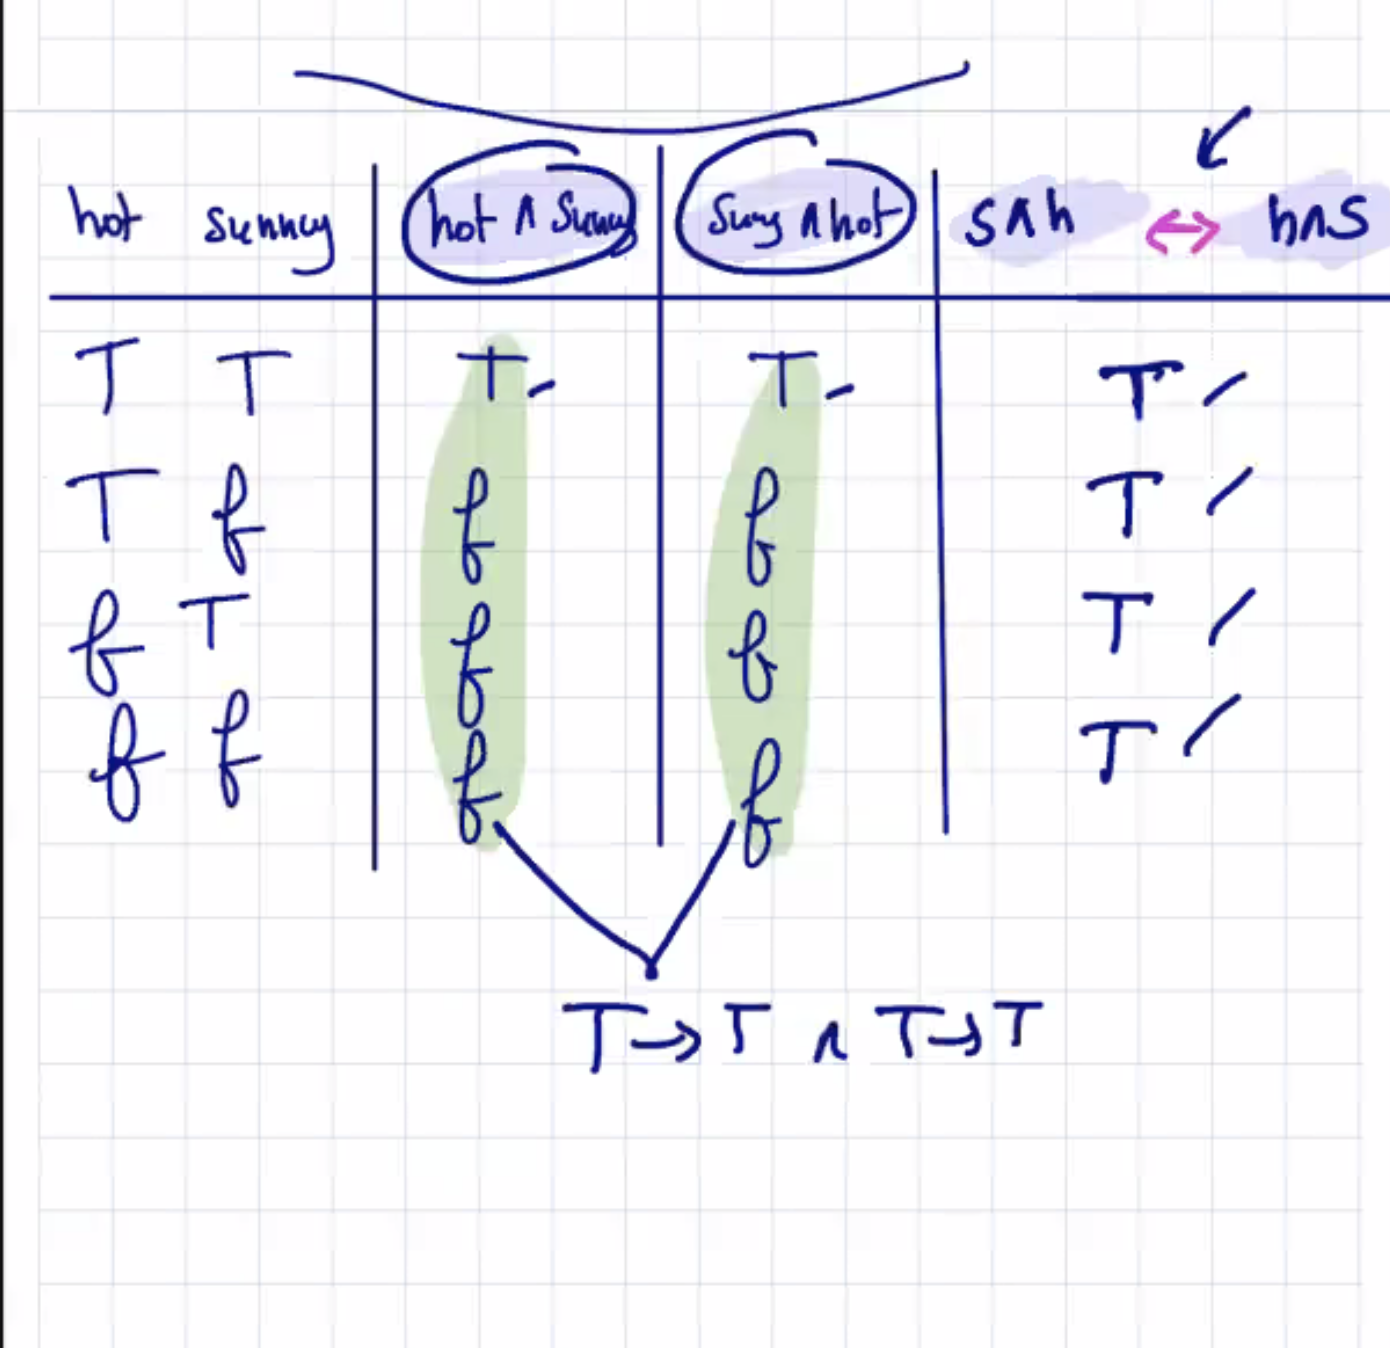 hot sunny hot ∧ Sunny Suny ∧ hot S∧h ↔ h∧S
T T T T T
T f f f T
f T f f T
f f f f T
T→T ∧ T→T